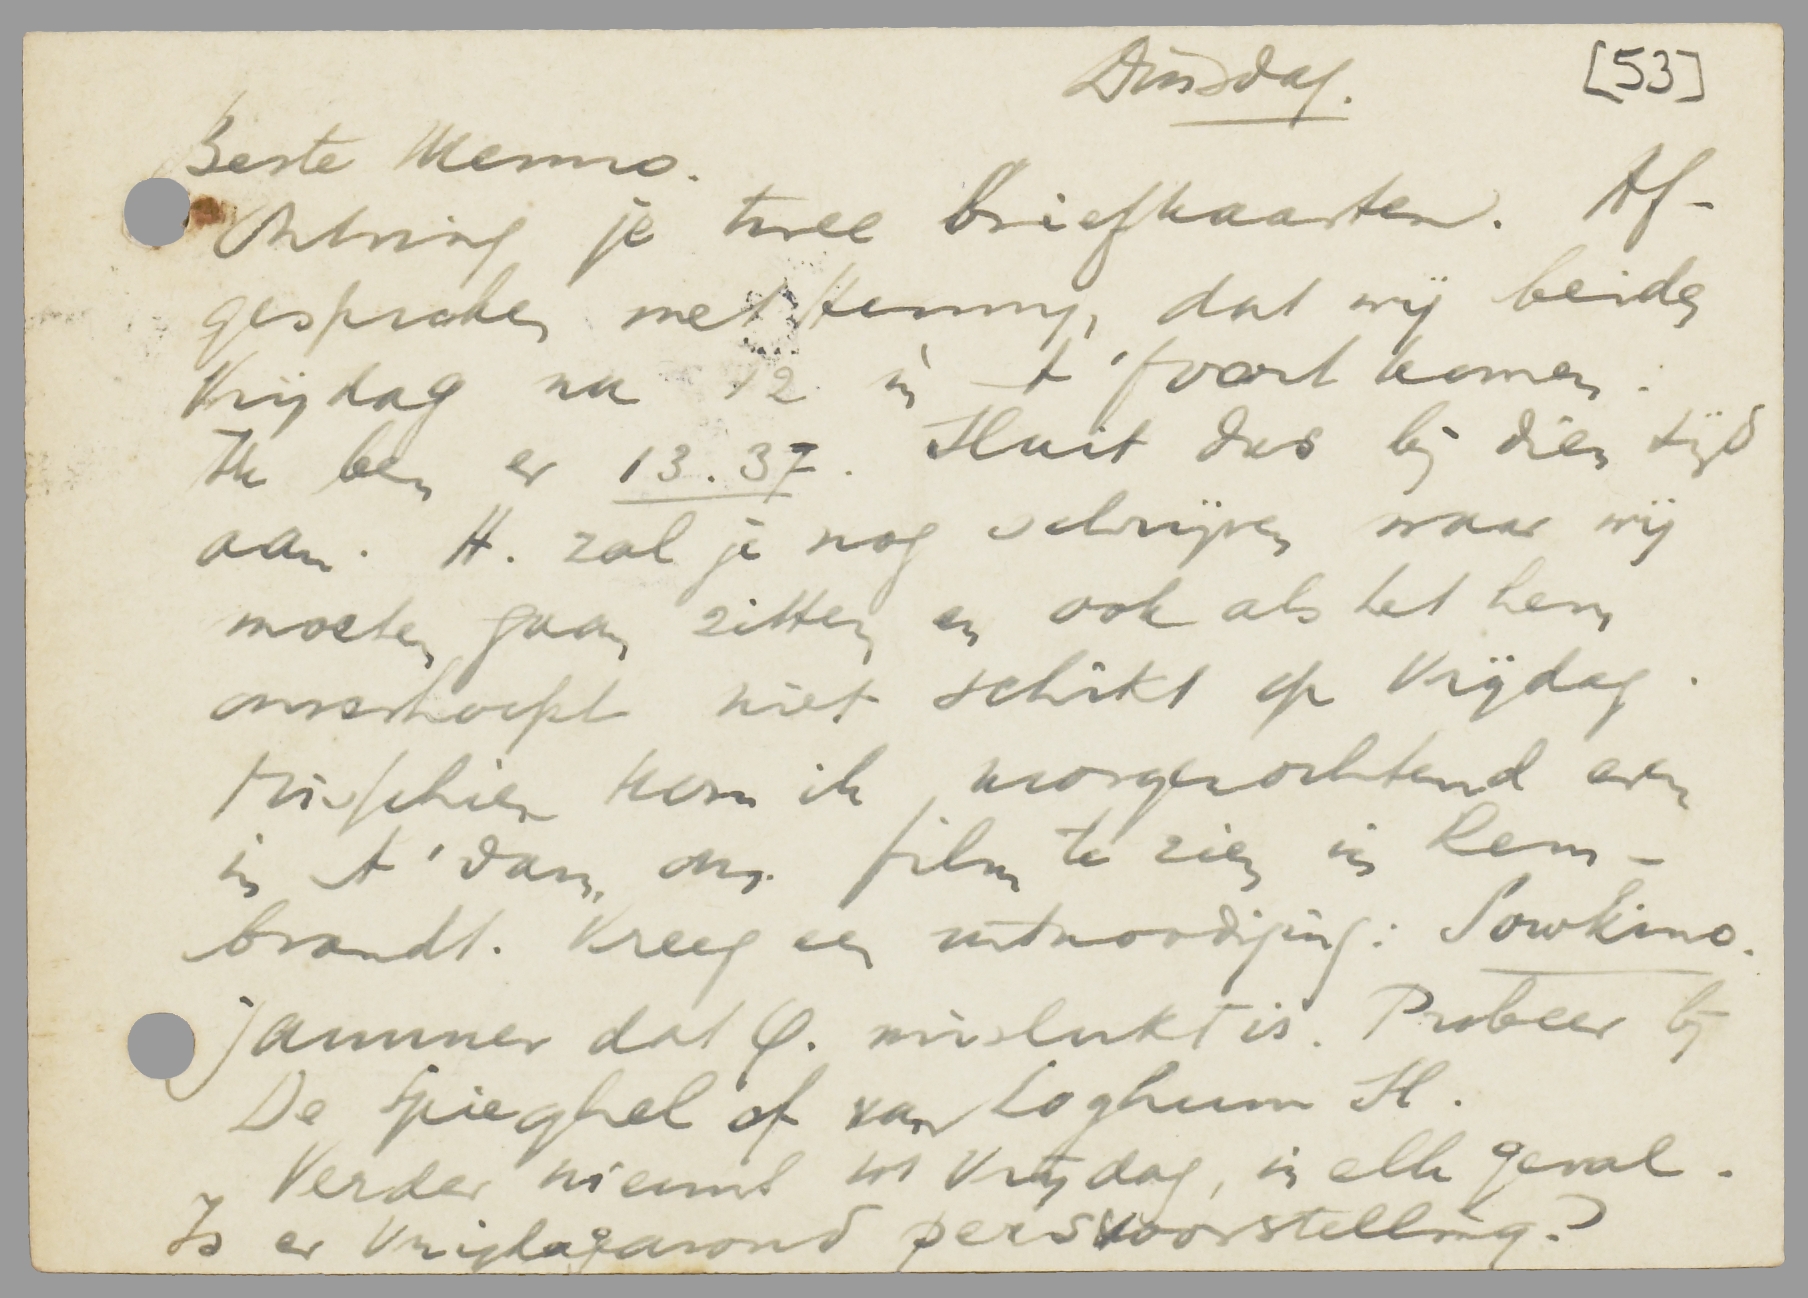 Dinsdag.
[53]
Beste Menno.
Ontving je twee briefkaarten. Af-
gesproken met Henny, dat wij beiden
Vrijdag na 12 in A'foort komen.
Ik ben er 13.37. Sluit dus bij dien tijd
aan. H. zal je nog schrijven waar wij
moeten gaan zitten en ook als het hem
onverhoopt niet schikt op Vrijdag.
Misschien kom ik morgenochtend even
in A'dam, om film te zien in Rem-
brandt. Kreeg een uitnoodiging: Sowkino.
Jammer dat Q. mislukt is. Probeer bij
De Spieghel of van Loghum Sl.
Verder niemt tot Vrijdag, in elk geval.
Is er Vrijdagavond persvoorstelling?